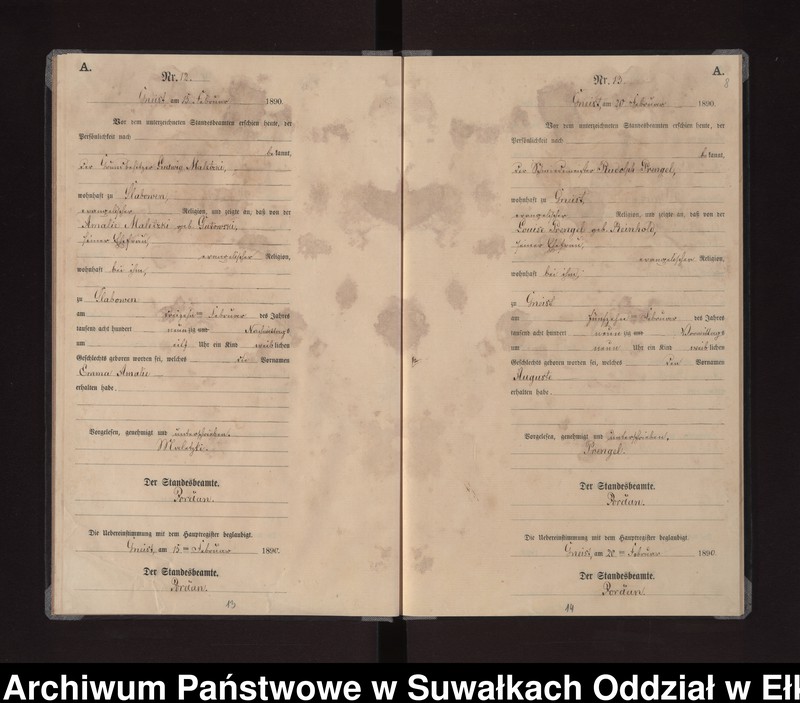 A.
Nr. 12.
Gneist am 15. Februar 1890.
Vor dem unterzeichneten Standesbeamten erschien heute, der
Persönlichkeit nach
bekannt,
der Grundbesitzer Ludwig
wohnhaft zu Slabowen,
evangelischer Religion, und zeigte an, daß von der
Amalie geb.
seiner Ehefrau,
evangelischer Religion,
wohnhaft bei ihm,
zu Slabowen
am ten Februar des Jahres
tausend acht hundert neunzig und Nachmittags
um elf Uhr ein Kind weiblichen
Geschlechts geboren worden sei, welches die Vornamen
Emma Amalie
erhalten habe.
Vorgelesen, genehmigt und unterschrieben.
Der Standesbeamte.
Pordan.
Die Uebereinstimmung mit dem Hauptregister beglaubigt.
Gneist, am 15 ten Februar 1890.
Der Standesbeamte.
Pordan.
13
A.
8
Nr. 13.
Gneist, am 20 Februar 1890.
Vor dem unterzeichneten Standesbeamten erschien heute, der
Persönlichkeit nach
bekannt,
der Schmiedemeister Rudolph
wohnhaft zu Gneist,
evangelischer Religion, und zeigte an, daß von der
Louise geb. Reinhold,
seiner Ehefrau,
evangelischen Religion,
wohnhaft bei ihm,
zu Gneist
am fünfzehn ten Februar des Jahres
tausend acht hundert neunzig und Vormittags
um neun Uhr ein Kind weiblichen
Geschlechts geboren worden sei, welches den Vornamen
Auguste
erhalten habe.
Vorgelesen, genehmigt und unterschrieben.
Der Standesbeamte.
Pordan.
Die Uebereinstimmung mit dem Hauptregister beglaubigt.
Gneist, am 20 ten Februar 1890.
Der Standesbeamte.
Pordan.
14
Archiwum Państwowe w Suwałkach Oddział w Ełk